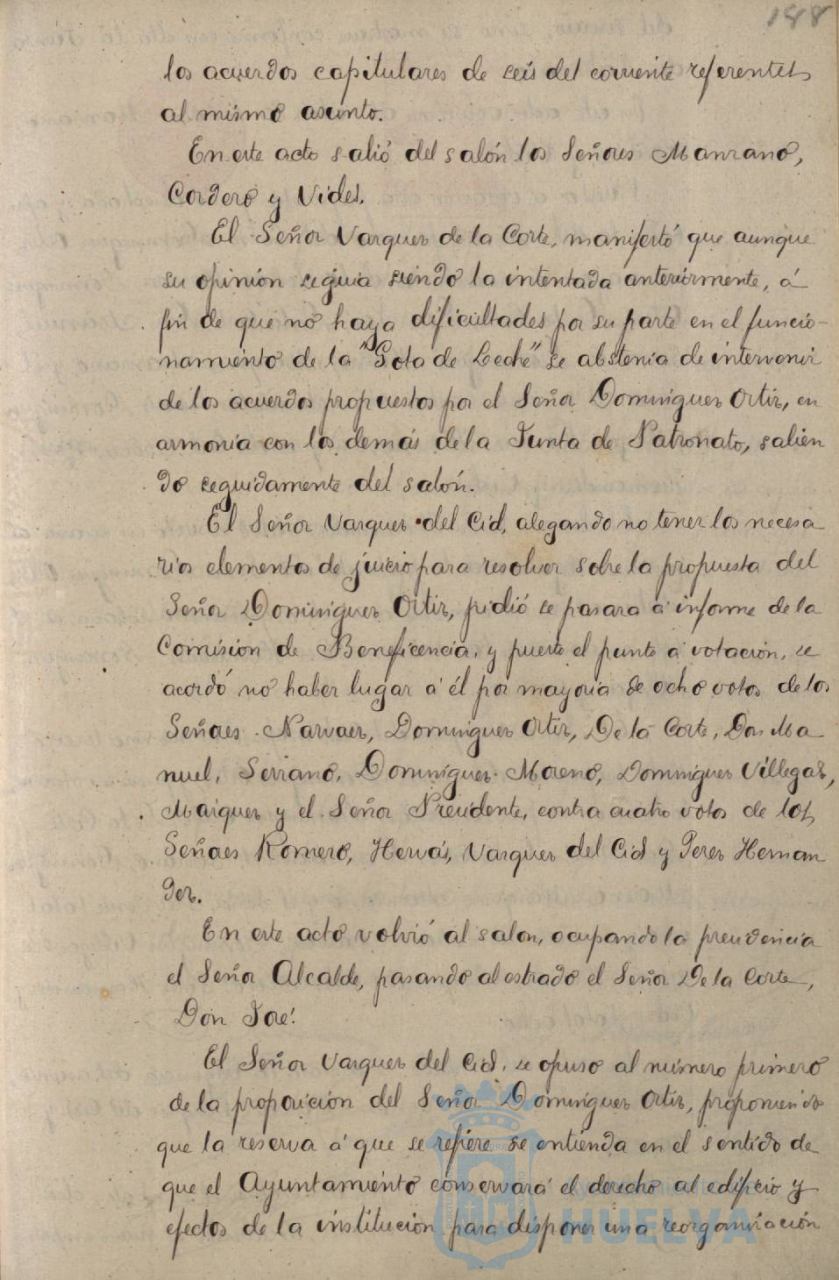 148
los acuerdos capitulares de seis del corriente referentes
al mismo asunto.
En este acto salió del salón los Señores Manzano,
Cordero y Vides.
El Señor Vazquez de la Corte, manifestó que aunque
su opinión seguia siendo la intentada anteriormente, á
fin de que no haya dificultades por su parte en el funcio-
namiento de la "Gota de Leche" se abstenia de intervenir
de los acuerdos propuestos por el Señor Dominguez Ortiz, en
armonia con los demás de la Junta de Patronato, salien
do seguidamente del salón.
El Señor Vazquez del Cid, alegando no tener los necesa
rios elementos de juicio para resolver sobre la propuesta del
Señor Dominguez Ortiz, pidió se pasara á informe de la
Comisión de Beneficencia, y puesto el punto á votación, se
acordó no haber lugar á él por mayoria de ocho votos de los
Señores Narvaez, Dominguez Ortiz, De la Corte, Don Ma
nuel, Serrano, Dominguez Moreno, Dominguez Villegas,
Maiquez y el Señor Presidente, contra cuatro votos de los
Señores Romero, Hervás, Vazquez del Cid y Perez Hernan
dez.
En este acto volvió al salon, ocupando la presidencia
el Señor Alcalde, pasando al estrado el Señor De la Corte,
Don José.
El Señor Vazquez del Cid, se opuso al número primero
de la proposición del Señor Dominguez Ortiz, proponiendo
que la reserva á que se refiere se entienda en el sentido de
que el Ayuntamiento conservará el derecho al edificio y
efectos de la institución para disponer una reorganización
HUELVA